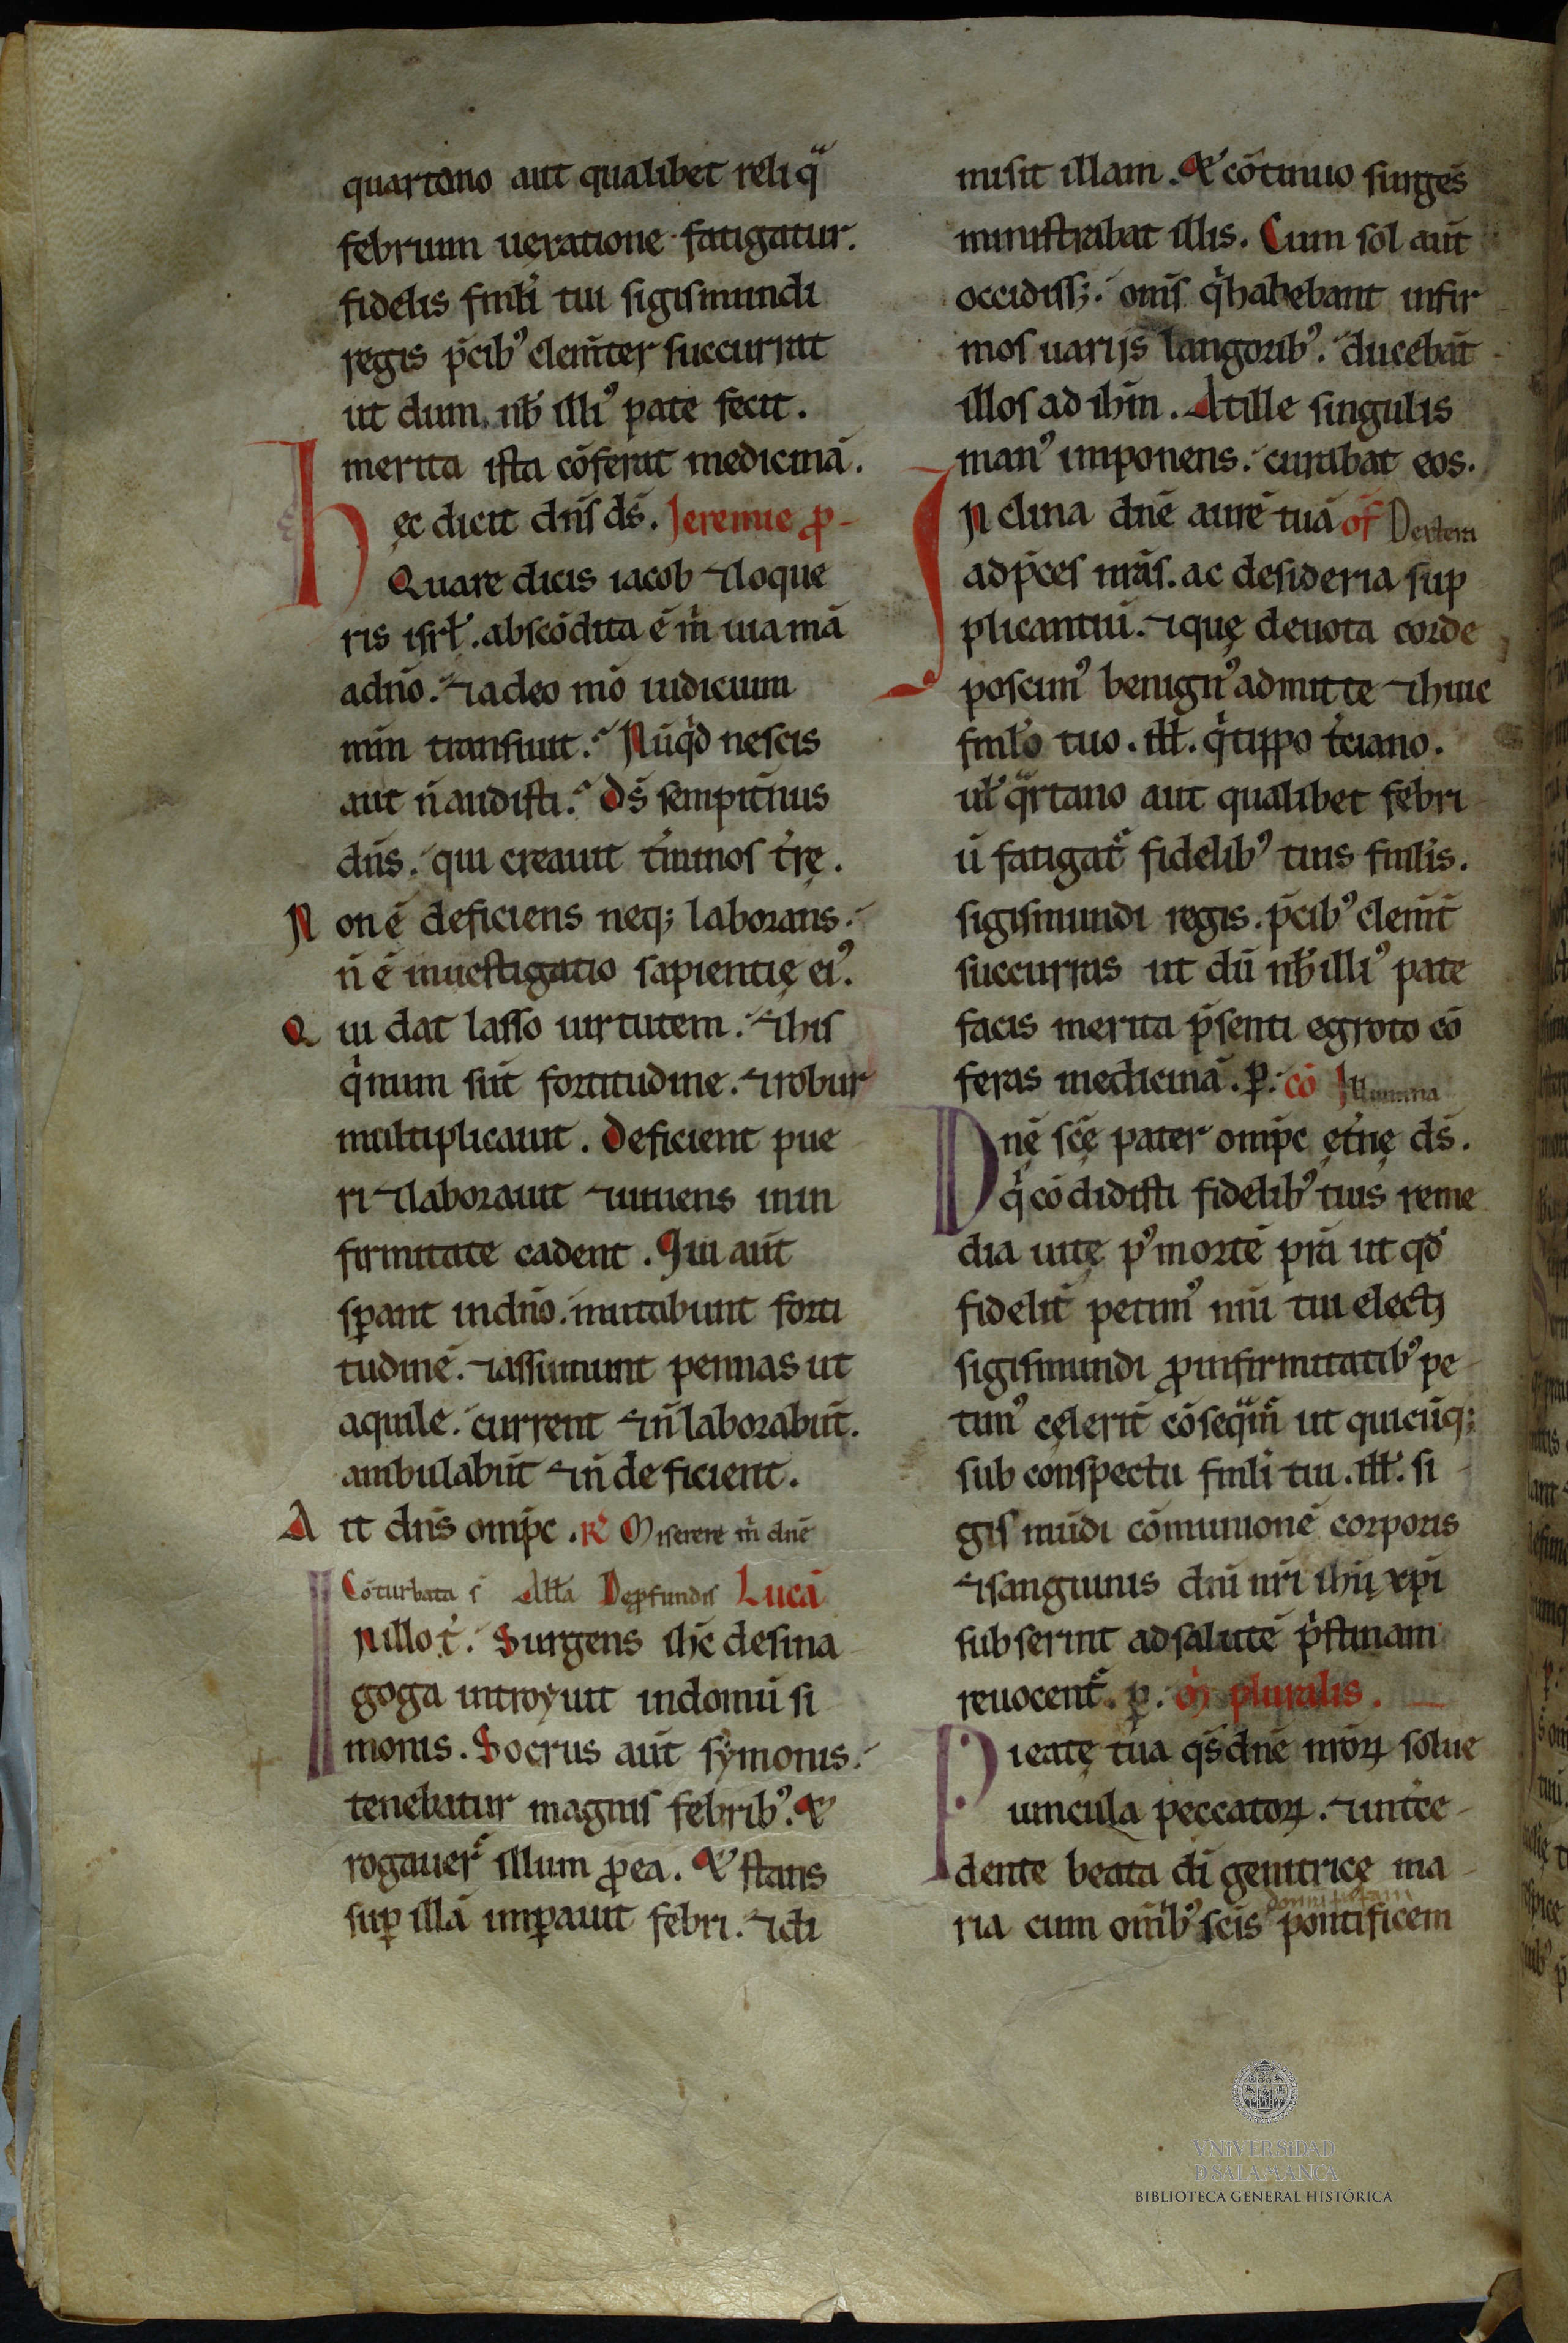 quartano aut qualibet reliqͣ
febrium uexatione fatigatur.
fidelis fml̄i tui sigismundi
regis p̄cib᾽ clem̄ter succurrat
ut dum nb̄ illi᾽ pate fecit.
merita ista cōferat medicinā.
hęc dicit dn̄s ds̄. Jeremie ꝓ-
Quare dicis iacob ⁊loque
ris isrl̄. abscōdita ē m̄ uia mā
adn̄o. ⁊adeo mō iudicium
min transiuit. Nūqͥd nescis
aut n̄ audisti. Ds̄ sempit̄nus
dn̄s. qui creauit t̄minos t̄rę.
Non ē deficiens neq; laborans.
n̄ ē inuestigatio sapientię ei᾽.
Qui dat lasso uirtutem. ⁊his
qͥ nium sūt fortitudine. ⁊robur
multiplicauit. Deficient pue
ri ⁊laborauit ⁊iuuens inin
firmitate cadent. Qui aūt
sꝑant indn̄o. mutabunt forti
tudinē. ⁊assumunt pennas ut
aquile. current ⁊n̄ laborabūt.
ambulabūt ⁊n̄ deficient.
Ait dn̄s omp̄c. R͛ Miserere m̄ dnē
Cōturbata s̄ All̄a Deꝓfundis Lucā
Jn illo t̄. Surgens ihc̄ desina
goga introyuit indomū si
monis. Socrus aūt symonis.
tenebatur magnis febrib᾽. &
rogauer̄ illum ꝓea. & stans
suꝑ illā imꝑauit febri. ⁊di
misit illam. & cōtinuo surges̄
ministrabat illis. Cum sol aūt
occidiss;. om̄s qͥ habebant infir
mos uarijs langorib᾽. ducebāt
illos ad ihm̄. Atille singulis
man᾽ imponens. curabat eos.
Jnclina dnē aurē tuā of̄ Dextem
adp̄ces nrās. ac desideria sup
plicantiū. ⁊quę deuota corde
poscim᾽ benign᾽ admitte ⁊huic
fml̄o tuo. ill̄. qͥ tippo t̄ciano.
ul̄ qͣrtano aut qualibet febri
ū fatigat̄ fidelib᾽ tuis fml̄is.
sigismundi regis. p̄cib᾽ clem̄t̄
succurras ut dū nb̄ illi᾽ pate
facis merita p̄senti egroto cō
feras medicinā. ꝑ. cō Jllumina
Dn̄ę sc̄ę pater omp̄c ęt̄nę ds̄.
qͥ cōdidisti fidelib᾽ tuis reme
dia uitę p᾽ mortē pr̄a ut qd̄
fidelit̄ petim᾽ mū tui electi
sigismundi ꝓinfirmitatib᾽ pe
tim᾽ cęlerit̄ cōseqͣm̄ ut quicūq;
sub conspectu fml̄i tui. ill̄. si
gismūdi cōmunionē corporis
⁊sanguinis dn̄i nr̄i ihū xp̄i
subserint adsalutē pͥstinam
reuocent̄. ꝑ. or̄ pluralis.
Pieatę tua qs̄ dnē nr̄oꝝ solue
uincula peccatoꝝ. ⁊int̄ce
dente beata di genitricę ma
ria cum omīb᾽ sc̄is pontificem
VNiVERSiDAD
D SALAMANCA
BIBLIOTECA GENERAL HISTÓRICA